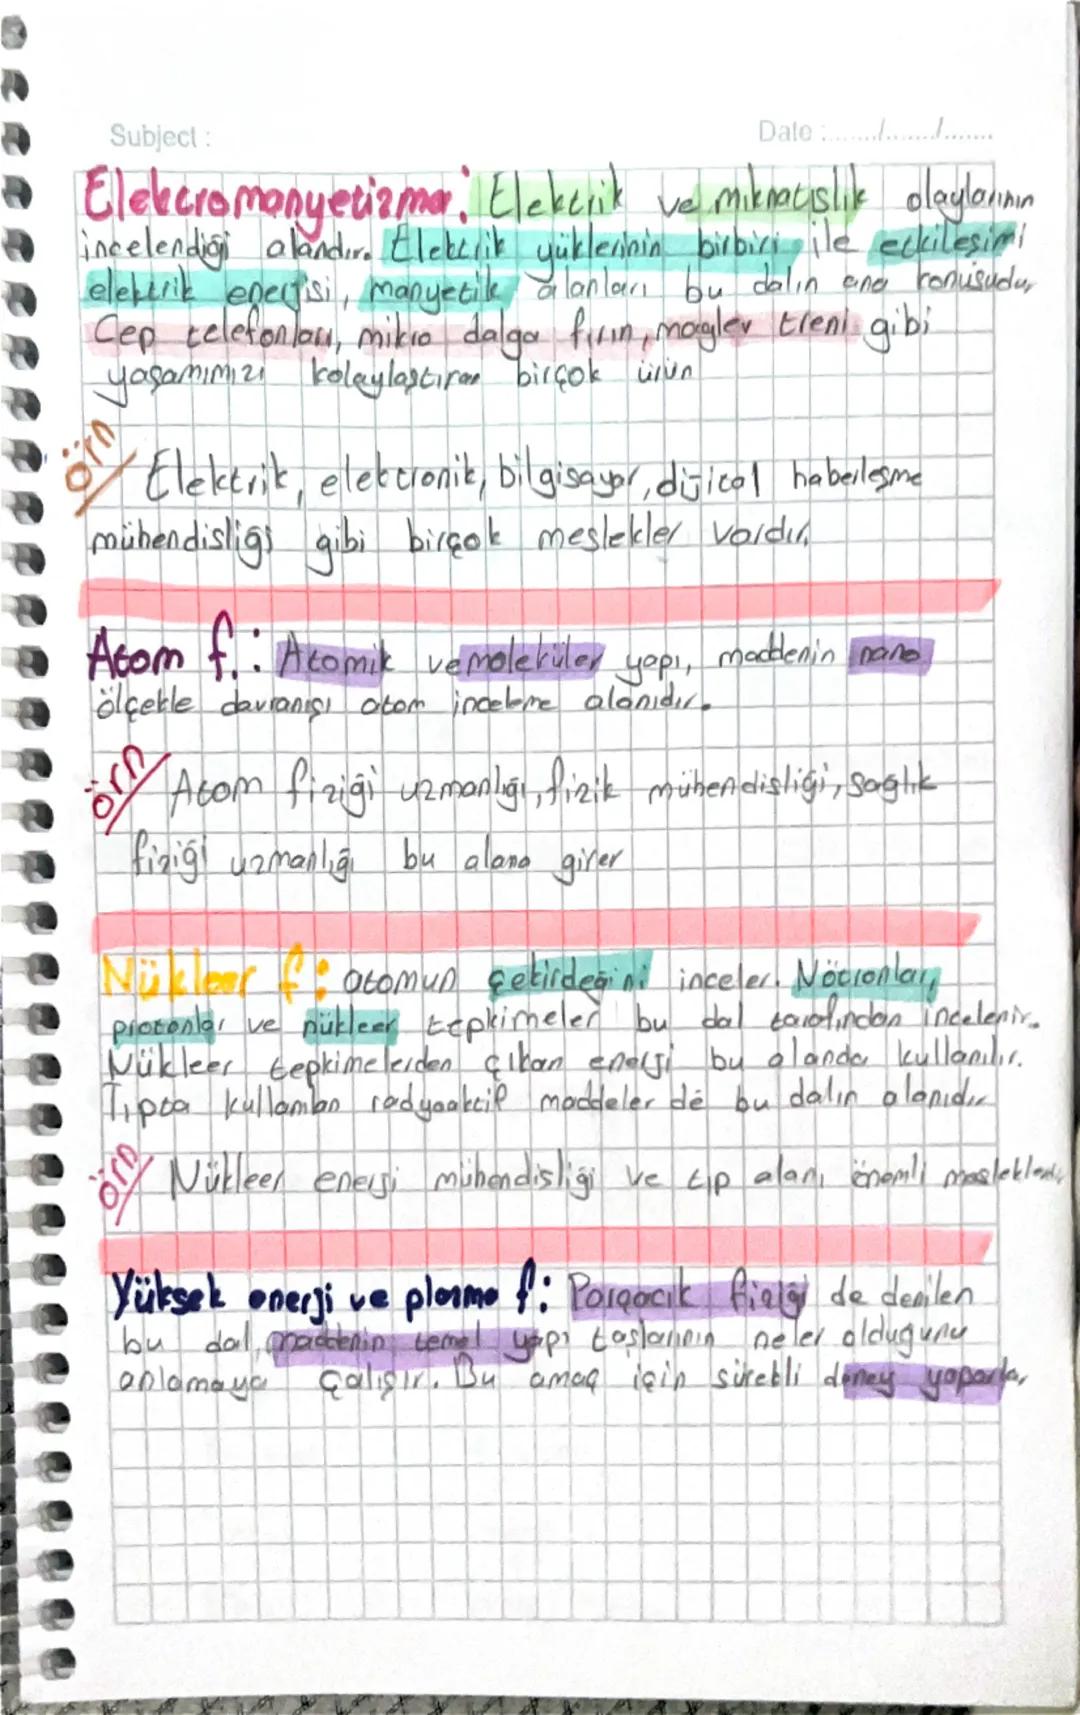 Subject :
Date :......./......./.......
Elektromanyetizma: Elektrik ve mıknatıslık olaylarının
incelendiği alandır. Elektrik yüklerinin birbiri ile etkileşimi
elektrik enerjisi, manyetik alanları bu dalın ana konusudur
Cep telefonları, mikro dalga fırın, maglev treni gibi
yaşamımızı kolaylaştıran birçok ürün
örn/ Elektrik, elektronik, bilgisayar, dijital haberleşme
mühendisliği gibi birçok meslekler vardır.
Atom f.: Atomik ve moleküler yapı, maddenin nano
ölçekle davranışı atom inceleme alanıdır.
örn/ Atom fiziği uzmanlığı, fizik mühendisliği, sağlık
fiziği uzmanlığı bu alana girer
Nükleer f: atomun çekirdeğini inceler. Nötronlar,
protonlar ve nükleer tepkimeler bu dal tarafından incelenir.
Nükleer tepkimelerden çıkan enerji bu alanda kullanılır.
Tıpta kullanılan radyoaktif maddeler de bu dalın alanıdır
örn/ Nükleer enerji mühendisliği ve tıp alanı önemli meslekleri
Yüksek enerji ve plazma f: Parçacık fiziği de denilen
bu dal, maddenin temel yapı taşlarının neler olduğunu
anlamaya çalışır. Bu amaç için sürekli deney yaparlar